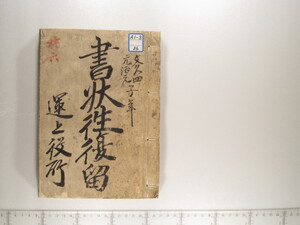 文久四
元治元 子年
書状往復留
運上役所